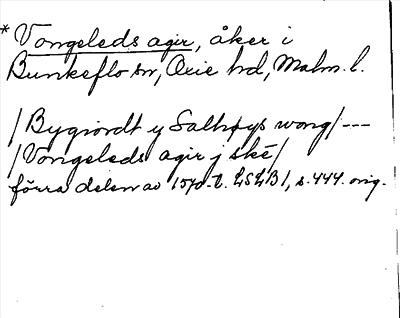 * Vongeleds agir, åker i
Bunkeflo sn, Oxie hd, Malm. l.
/Bygiordt y Salhøys wong/ ---
/Vongeleds agir j ské/
förra delen av 1570-t. LSLB 1, s. 444. orig.